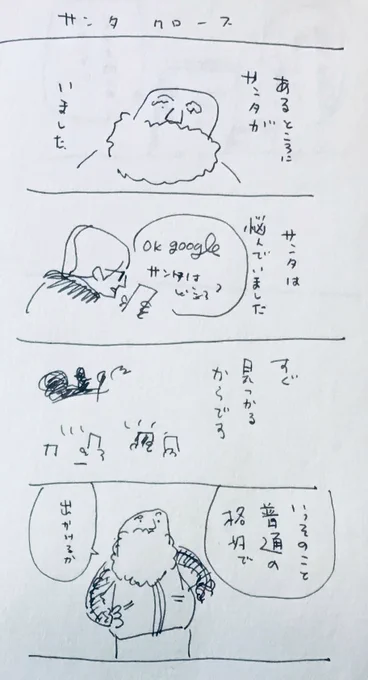 サンタクロース
あるところに
サンタが
いました
サンタは
悩んでいました
OK google
サンタは
どこ？
すぐ
見つかる
からです
いっそのこと
普通の
格好で
出かけるか